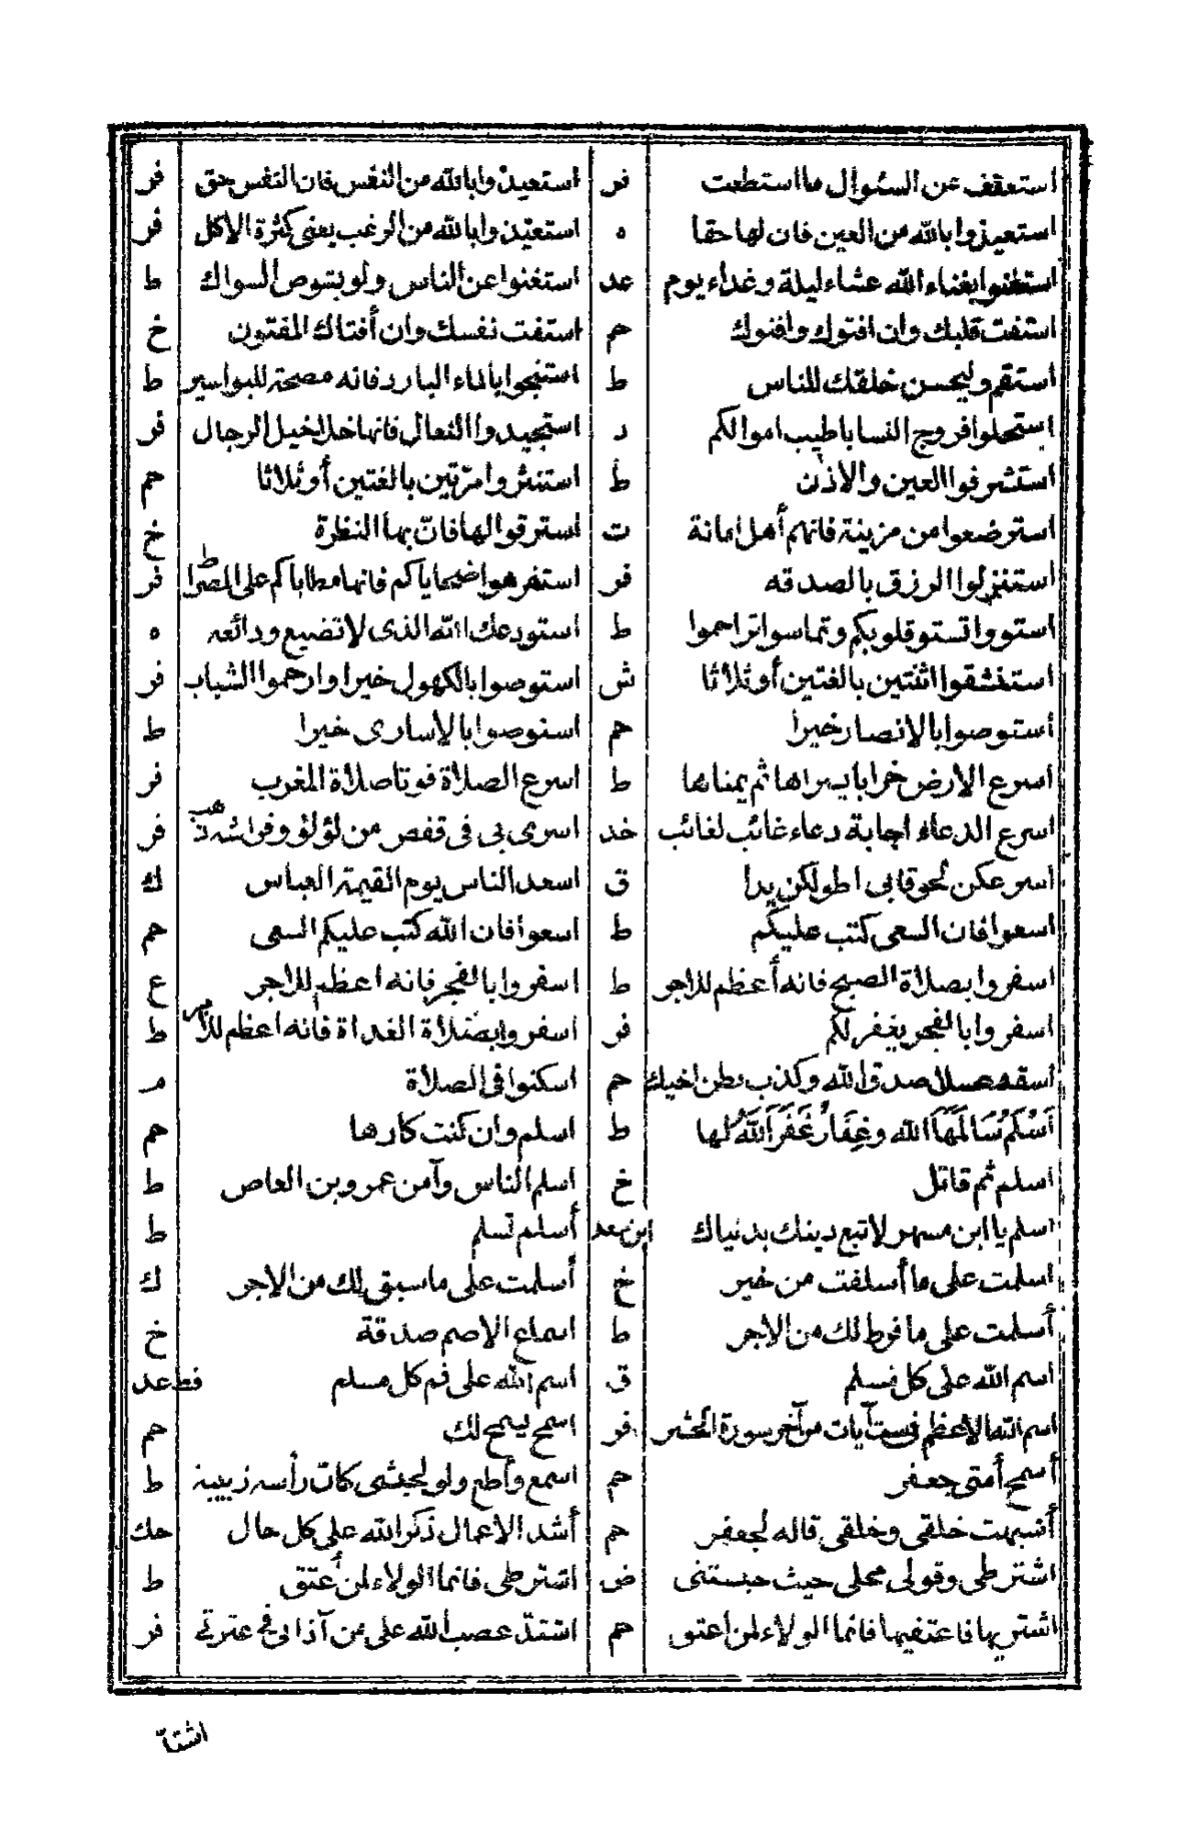 استعفف عن السؤال ما استطعت فر استعيذوا بالله من النفس فان النفس حق فر
استعيذوا بالله من العين فان لها حقا ه استعيذوا بالله من الرغب يعنى كثرة الاكل فر
استغنوا بغناء الله عشاء ليلة وغداء يوم عد استغنوا عن الناس ولو بشوص السواك ط
استفت قلبك وان افتوك وافتوك حم استفت نفسك وان أفتاك المفتون خ
استقم وليحسن خلقك للناس ط استنجوا بالماء البارد فانه مصحة للبواسير ط
استحلوا فروج النسا باطيب اموالكم د استجيدوا النعال فانها خلاخيل الرجال فر
استشرفوا العين والاذن ط استنثروا مرّتين بالغتين أو ثلاثا حم
استرضعوا من مزينة فانهم أهل امانة ت استرقوا لها فانّ بها النظرة خ
استنزلوا الرزق بالصدقه فر استفرهوا ضحاياكم فانها مطاياكم على الصراط فر
استووا تستو قلوبكم وتماسوا تراحموا ط استودعك الله الذى لا تضيع ودائعه ه
استنشقوا اثنتين بالغتين أو ثلاثا ش استوصوا بالكهول خيرا وارحموا الشباب فر
استوصوا بالانصار خيرا حم استوصوا بالاسارى خيرا ط
اسرع الارض خرابا يسراها ثم يمناها ط اسرع الصلاة فوتا صلاة المغرب فر
اسرع الدعاء اجابة دعاء غائب لغائب خد اسرى بى فى قفص من لؤلؤ وفراشه ذهب فر
اسرعكن لحوقا بى اطولكن يدا ق اسعد الناس يوم القيمة العباس ك
اسعوا فان السعى كتب عليكم ط اسعوا فان الله كتب عليكم السعى حم
اسفروا بصلاة الصبح فانه أعظم للاجر ط اسفروا بالفجر فانه اعظم للاجر ع
اسفروا بالفجر يغفر لكم فر اسفروا بصلاة الغداة فانه اعظم للاجر ط
اسقه عسلا صدق الله وكذب بطن اخيك حم اسكنوا فى الصلاة م
اَسْلَمُ سَالَمَهَا الله وغِفَارُ غَفَرَ اللهُ لها ط اسلم وان كنت كارها حم
اسلم ثم قاتل خ اسلم الناس وآمن عمرو بن العاص ط
اسلم يا ابن مسهر لا تبع دينك بدنياك ابن سعد أسلم تسلم ط
اسلمت على ما أسلفت من خير خ أسلمت على ما سبق لك من الاجر ك
أسلمت على ما فرط لك من الاجر ط اسماع الاصم صدقة خ
اسم الله على كل مسلم ق اسم الله على فم كل مسلم قط عد
اسم الله الاعظم فى ست آيات من آخر سورة الحشر فر اسمح يسمح لك حم
أسمح أمتى جعفر حم اسمع وأطع ولو لحبشى كانّ رأسه زبيبة ط
أشبهت خلقى وخلقى قاله لجعفر حم أشد الاعمال ذكر الله على كل حال حك
اشترطى وقولى محلى حيث حبستنى ض اشترطى فانما الولاء لمن أعتق ط
اشتريها فاعتقيها فانما الولاء لمن أعتق حم اشتدّ غضب الله على من آذانى فى عترتى فر
اشتدّ